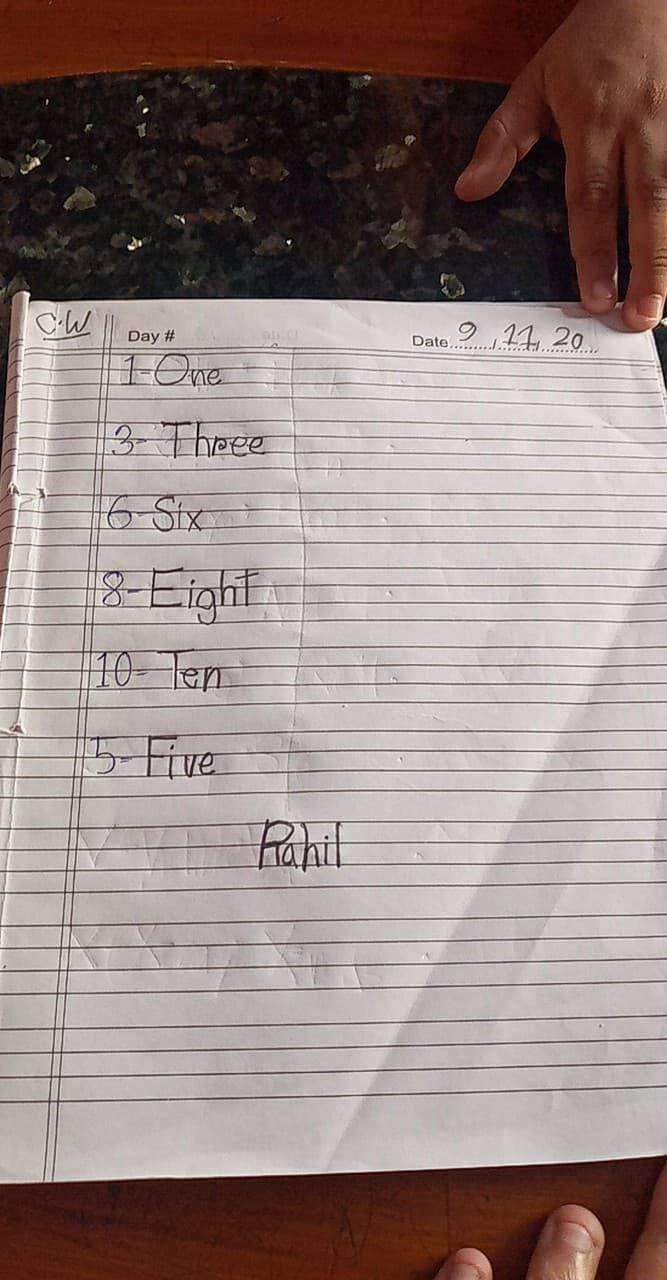 C.W Day # Date 9, 11, 20
1-One
3- Three
6-Six
8-Eight
10- Ten
5- Five
Rahil